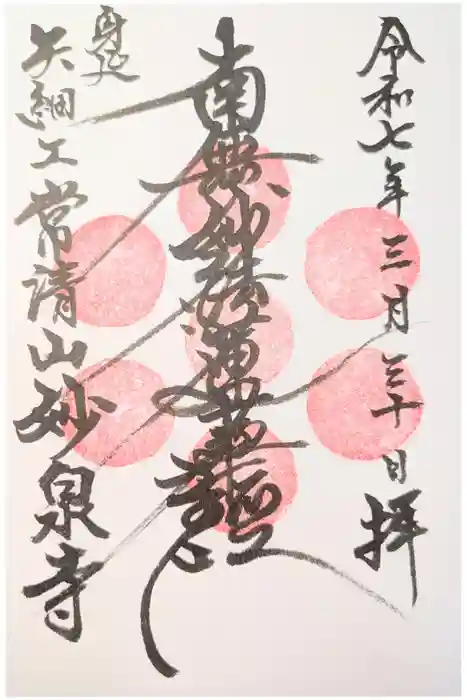 令和七年三月三十日拝
南無妙法蓮華経
身延
矢細工常清山妙泉寺